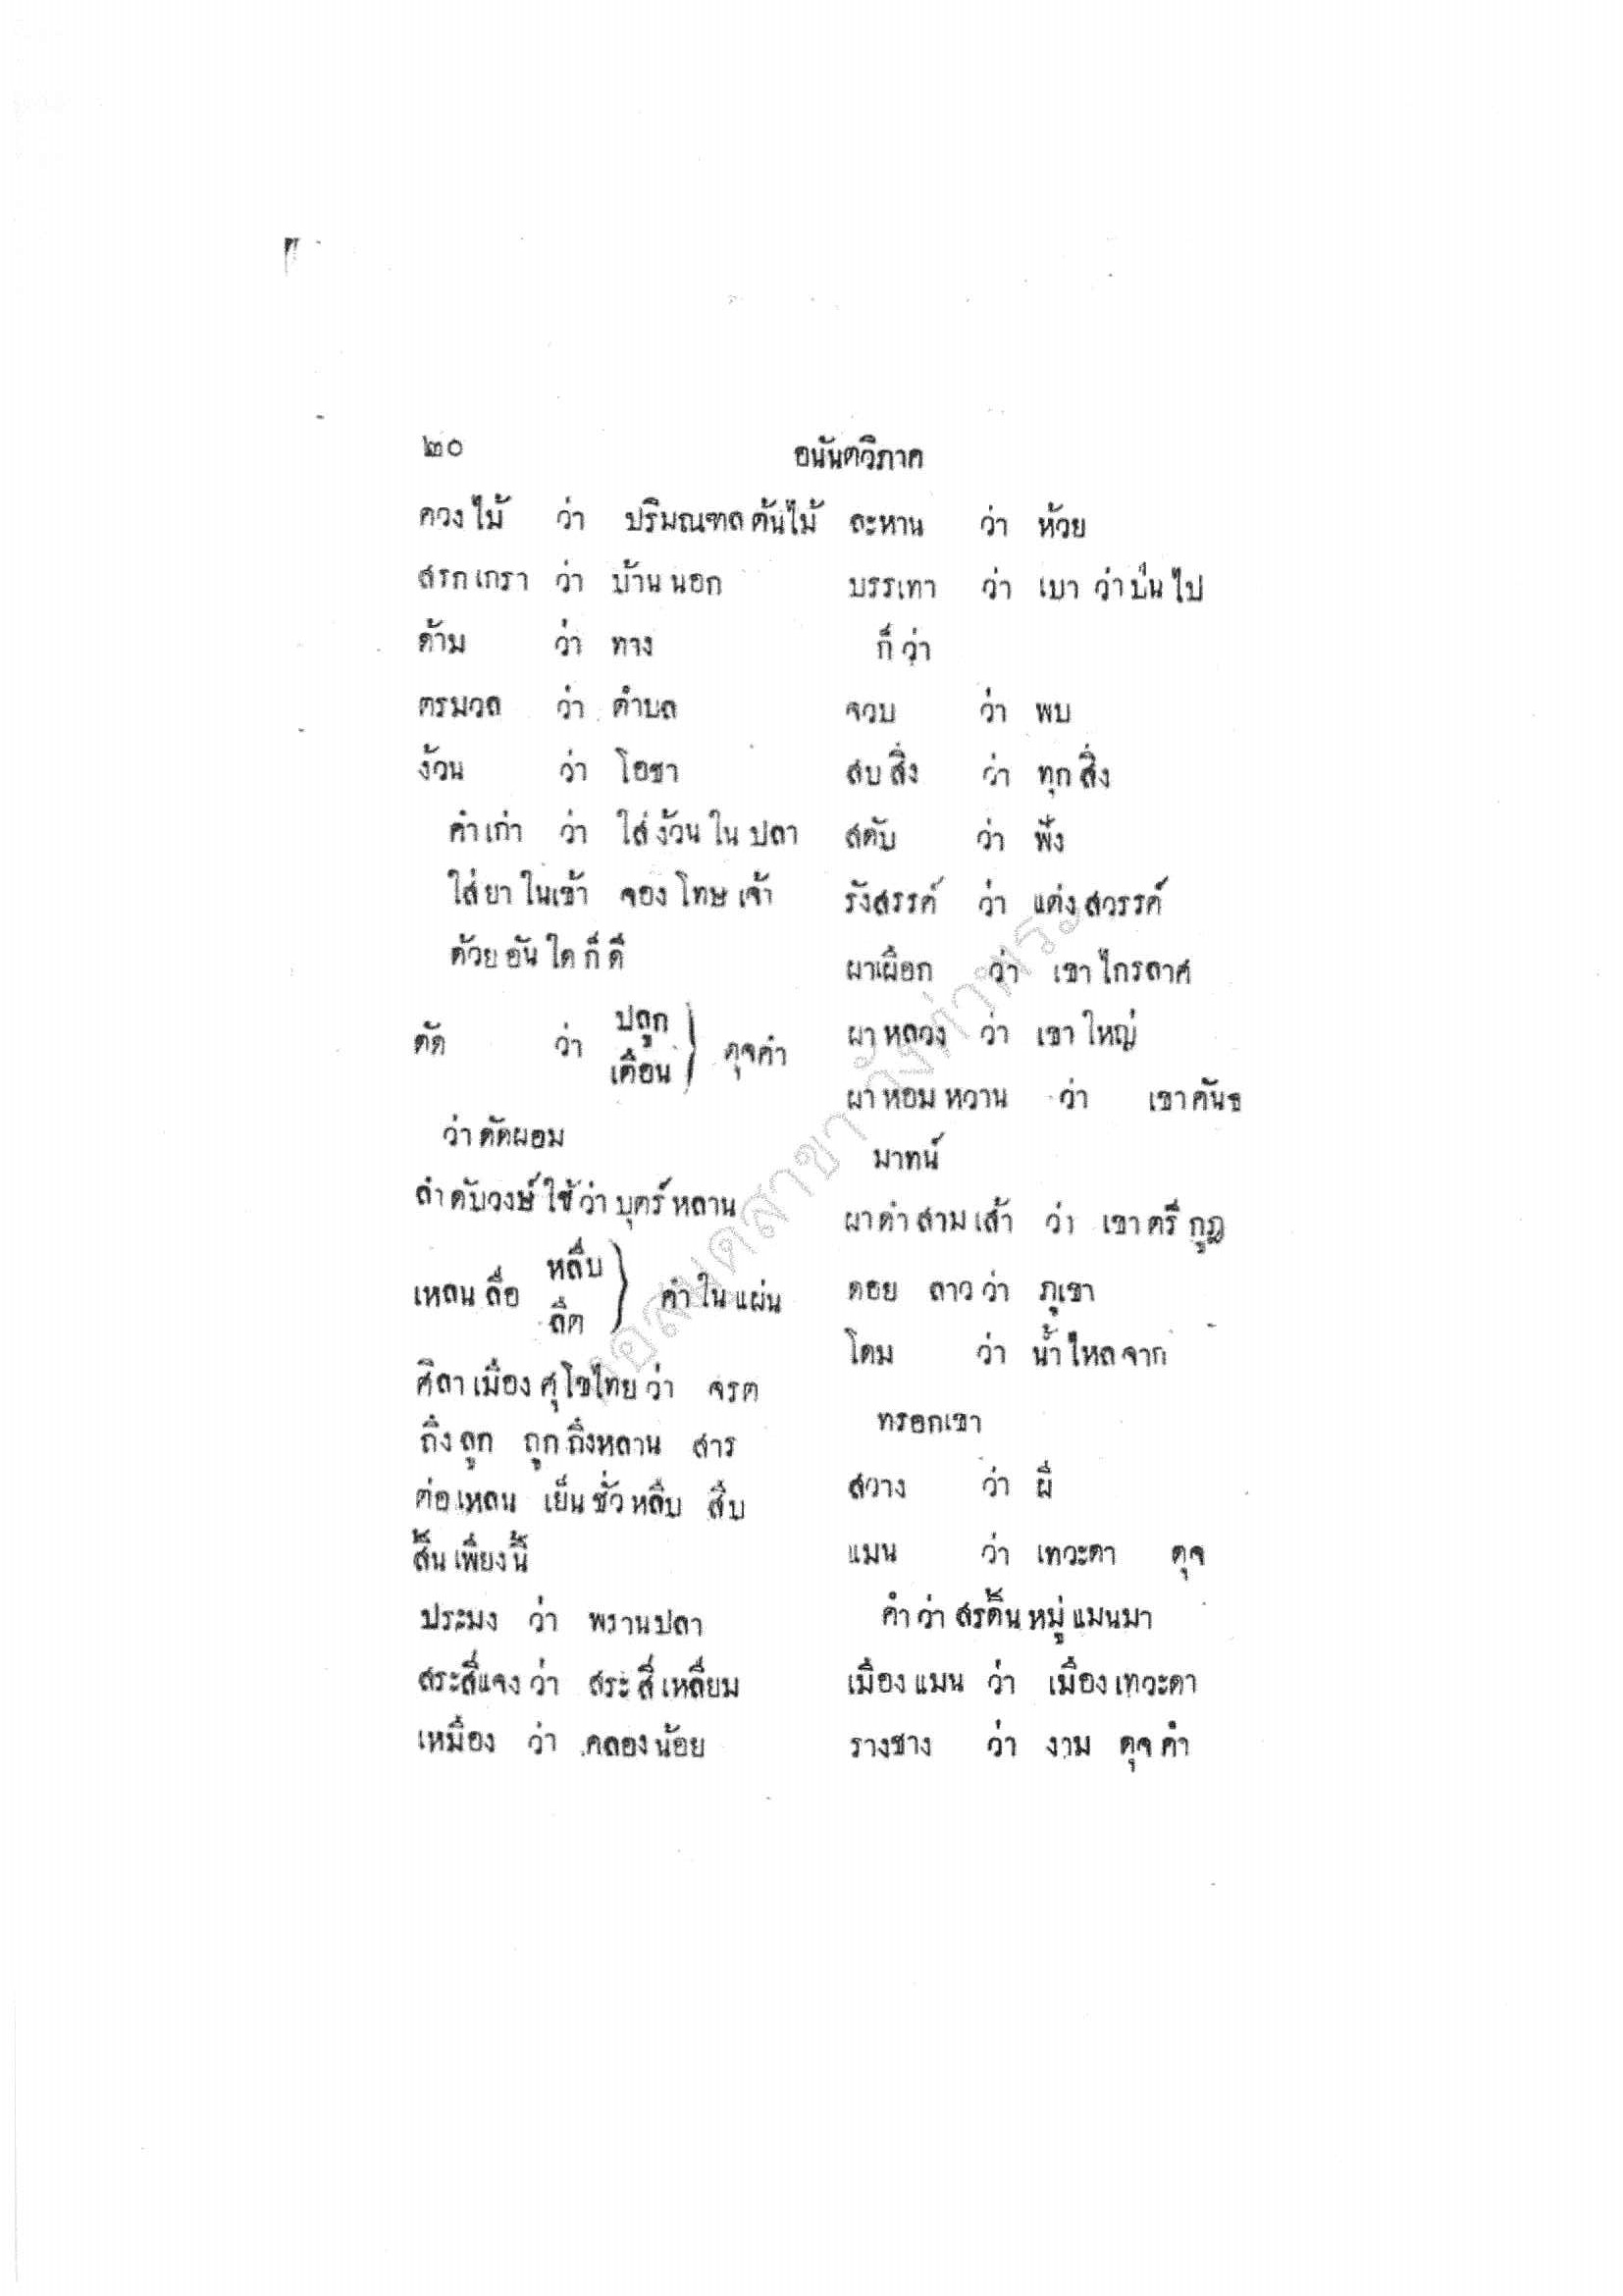 ๒๐
อนันตวิภาค
ควงไม้ ว่า ปริมณฑลต้นไม้
สรกเกรา ว่า บ้านนอก
ด้าม ว่า ทาง
ตรมวล ว่า ตำบล
ง้วน ว่า โอชา
คำเก่า ว่า ใส่ง้วนในปลา
ใส่ยาในเข้า จองโทษเจ้า
ด้วยอันใดก็ดี
ดัด ว่า ปลูก เตือน } ดุจคำ
ว่าดัดผอม
ลำดับวงษ์ใช้ว่าบุตร์หลาน
เหลนลือ หลืบ ลืด } คำในแผ่น
ศิลาเมืองศุโขไทยว่า จรด
ถึงลูก ลูกถึงหลาน สาร
ต่อเหลน เย็นชั่วหลืบ สืบ
สิ้นเพียงนี้
ประมง ว่า พรานปลา
สระสี่แจง ว่า สระสี่เหลี่ยม
เหมือง ว่า คลองน้อย
ละหาน ว่า ห้วย
บรรเทา ว่า เบา ว่าบ่นไป
ก็ว่า
จวบ ว่า พบ
สบสิ่ง ว่า ทุกสิ่ง
สดับ ว่า ฟัง
รังสรรค์ ว่า แต่งสวรรค์
ผาเผือก ว่า เขาไกรลาศ
ผาหลวง ว่า เขาใหญ่
ผาหอมหวาน ว่า เขาคันธ
มาทน์
ผาดำสามเส้า ว่า เขาตรีกูฏ
ดอย ลาวว่า ภูเขา
โดม ว่า น้ำไหลจาก
ทรอกเขา
สวาง ว่า ผี
แมน ว่า เทวะดา ดุจ
คำว่าสรดื้นหมู่แมนมา
เมืองแมน ว่า เมืองเทวะดา
รางชาง ว่า งาม ดุจคำ
หอสมุดสาขา วังท่าพระ